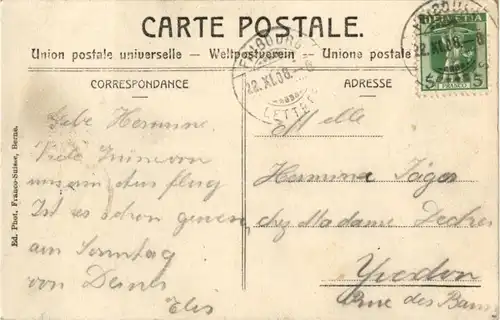 CARTE POSTALE.
Union postale universelle – Weltpostverein – Unione postale
CORRESPONDANCE
ADRESSE
22.XI.08.–8
LETTRES
22.XI.08.–8
HELVETIA
5 5
FRANCO
Ed. Phot. Franco-Suisse, Berne.
Liebe Hermine
Viele Grüsse von
Ist es schon gewesen
am Sonntag
von Deiner
Elis
Hermine Jäger
chez Madame
Yverdon
Rue des